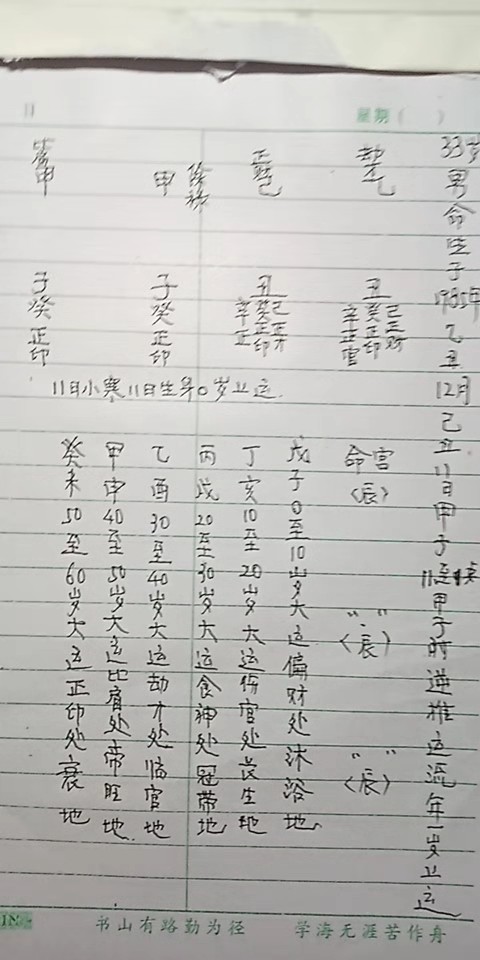 星期( )
33岁男命生于1985年乙丑12月己丑11日甲子11至1点甲子时逆推运流年一岁上运
劫才乙
正财己
徐栋
甲
比肩甲
丑
己正财
癸正印
辛正官
丑
己正才
癸正印
辛正
子癸正印
子癸正印
11日小寒11日生年0岁上运.
命宫〈辰〉
〃〃〈辰〉
〃〃〈辰〉
戊子0至10岁大运偏财处沐浴地
丁亥10至20岁大运伤官处长生地
丙戌20至30岁大运食神处冠带地
乙酉30至40岁大运劫才处临官地
甲申40至50岁大运比肩处帝旺地.
癸未50至60岁大运正印处衰地
书山有路勤为径 学海无涯苦作舟